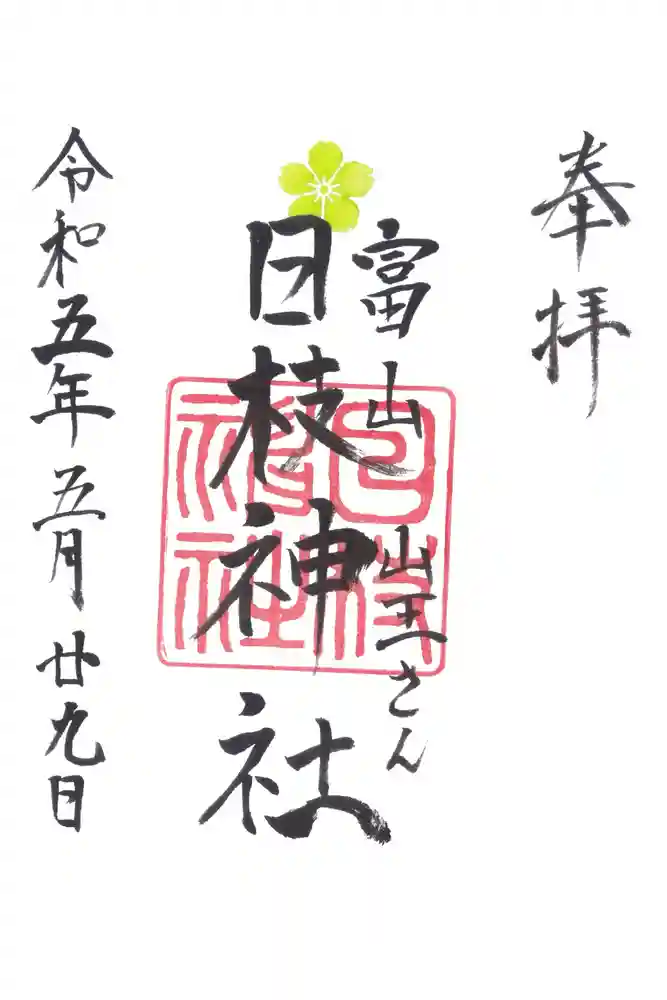 奉拝
富山山王さん
日枝神社
日枝神社
令和五年五月廿九日